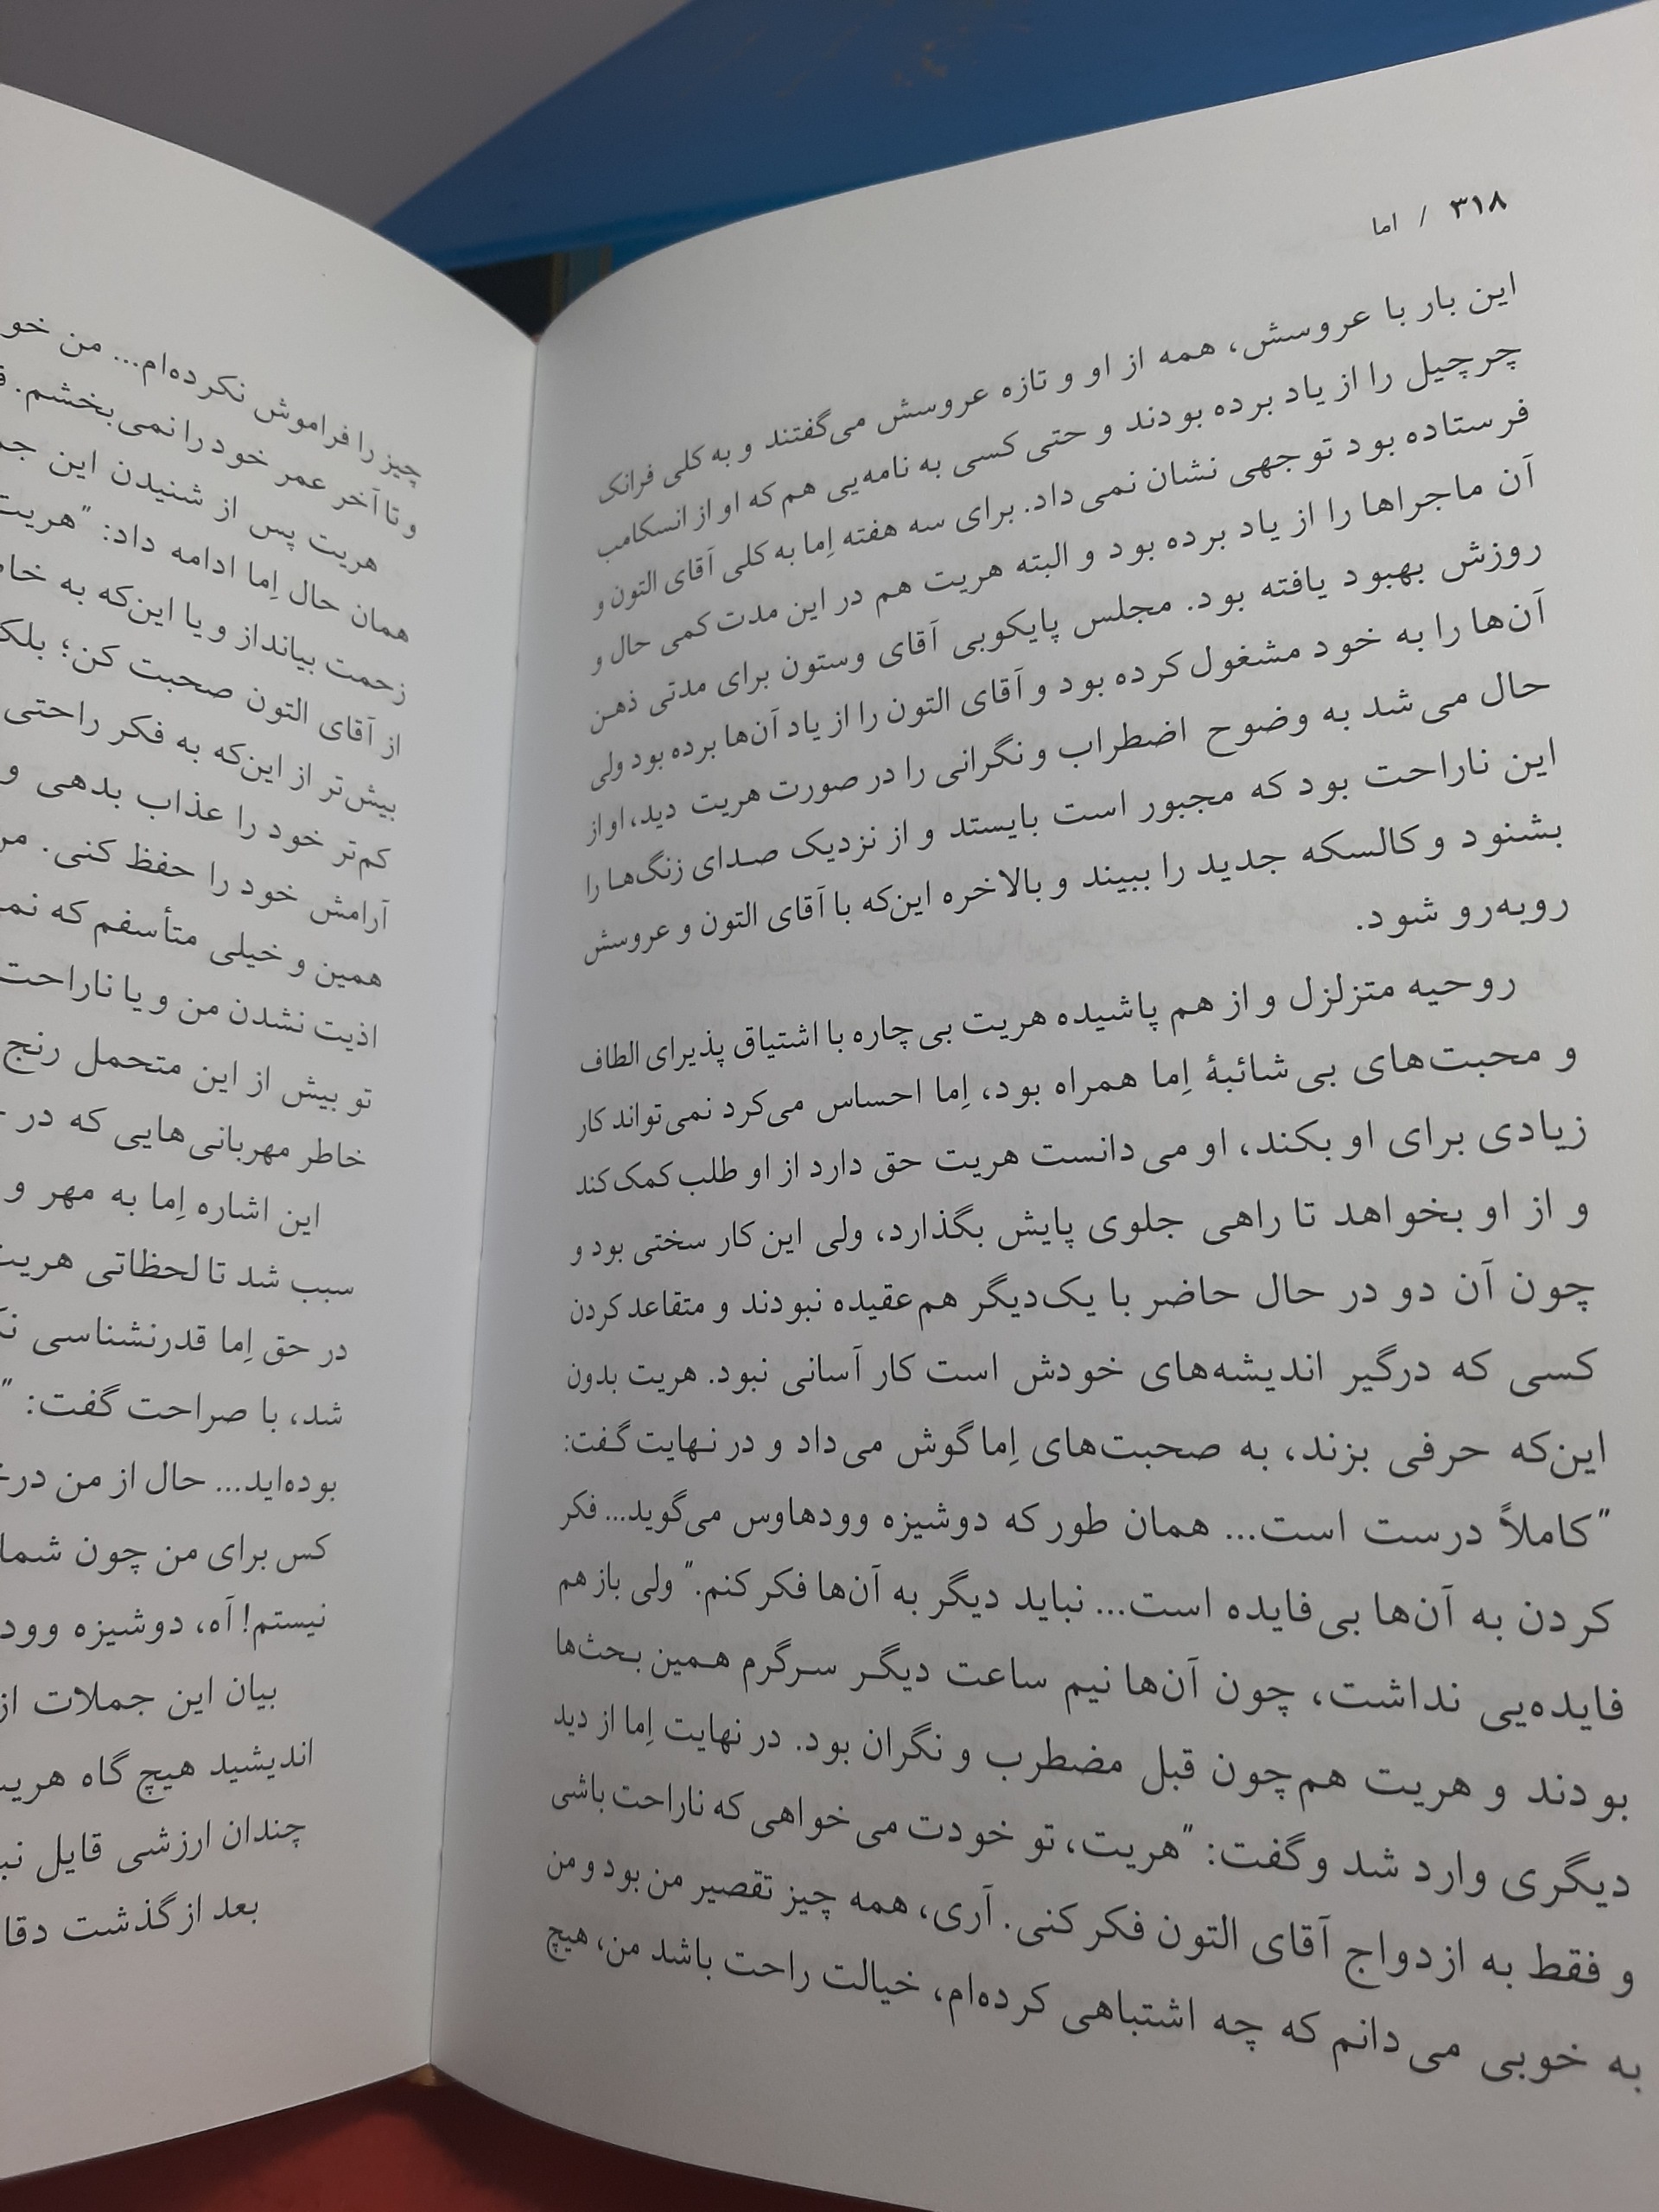 ۳۱۸ / اما
این بار با عروسش، همه از او و تازه عروسش می‌گفتند و به کلی فرانک
چرچیل را از یاد برده بودند و حتی کسی به نامه‌یی هم که او از انسکامب
فرستاده بود توجهی نشان نمی‌داد. برای سه هفته اِما به کلی آقای التون و
آن ماجراها را از یاد برده بود و البته هریت هم در این مدت کمی حال و
روزش بهبود یافته بود. مجلس پایکوبی آقای وستون برای مدتی ذهن
آن‌ها را به خود مشغول کرده بود و آقای التون را از یاد آن‌ها برده بود ولی
حال می‌شد به وضوح اضطراب و نگرانی را در صورت هریت دید، او از
این ناراحت بود که مجبور است بایستد و از نزدیک صدای زنگ‌ها را
بشنود و کالسکه جدید را ببیند و بالاخره این‌که با آقای التون و عروسش
روبه‌رو شود.
روحیه متزلزل و از هم پاشیده هریت بی‌چاره با اشتیاق پذیرای الطاف
و محبت‌های بی‌شائبۀ اِما همراه بود، اِما احساس می‌کرد نمی‌تواند کار
زیادی برای او بکند، او می‌دانست هریت حق دارد از او طلب کمک کند
و از او بخواهد تا راهی جلوی پایش بگذارد، ولی این کار سختی بود و
چون آن دو در حال حاضر با یک‌دیگر هم‌عقیده نبودند و متقاعد کردن
کسی که درگیر اندیشه‌های خودش است کار آسانی نبود. هریت بدون
این‌که حرفی بزند، به صحبت‌های اِما گوش می‌داد و در نهایت گفت:
"کاملاً درست است... همان طور که دوشیزه وودهاوس می‌گوید... فکر
کردن به آن‌ها بی‌فایده است... نباید دیگر به آن‌ها فکر کنم." ولی باز هم
فایده‌یی نداشت، چون آن‌ها نیم ساعت دیگر سرگرم همین بحث‌ها
بودند و هریت هم‌چون قبل مضطرب و نگران بود. در نهایت اِما از دید
دیگری وارد شد و گفت: "هریت، تو خودت می‌خواهی که ناراحت باشی
و فقط به ازدواج آقای التون فکر کنی. آری، همه چیز تقصیر من بود و من
به خوبی می‌دانم که چه اشتباهی کرده‌ام، خیالت راحت باشد من، هیچ
چیز را فراموش نکرده‌ام... من
و تا آخر عمر خود را نمی‌بخشم.
هریت پس از شنیدن این
همان حال اِما ادامه داد: "هریت
زحمت بیانداز و یا این‌که به
از آقای التون صحبت کن؛
بیش‌تر از این‌که به فکر راحتی
کم‌تر خود را عذاب بدهی و
آرامش خود را حفظ کنی.
همین و خیلی متأسفم که
اذیت نشدن من و یا ناراحت
تو بیش از این متحمل رنج
خاطر مهربانی‌هایی که در
این اشاره اِما به مهر و
سبب شد تا لحظاتی
در حق اِما قدرنشناسی
شد، با صراحت گفت: "
بوده‌اید... حال از من
کس برای من چون شما
نیستم! آه، دوشیزه
بیان این جملات از
اندیشید هیچ گاه
چندان ارزشی قایل
بعد از گذشت